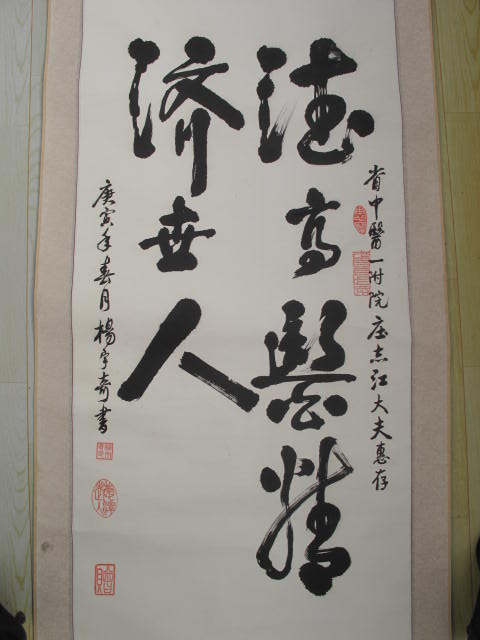 省中醫一附院庄志江大夫惠存
德高醫精
济世人
庚寅年春月楊宇奇書